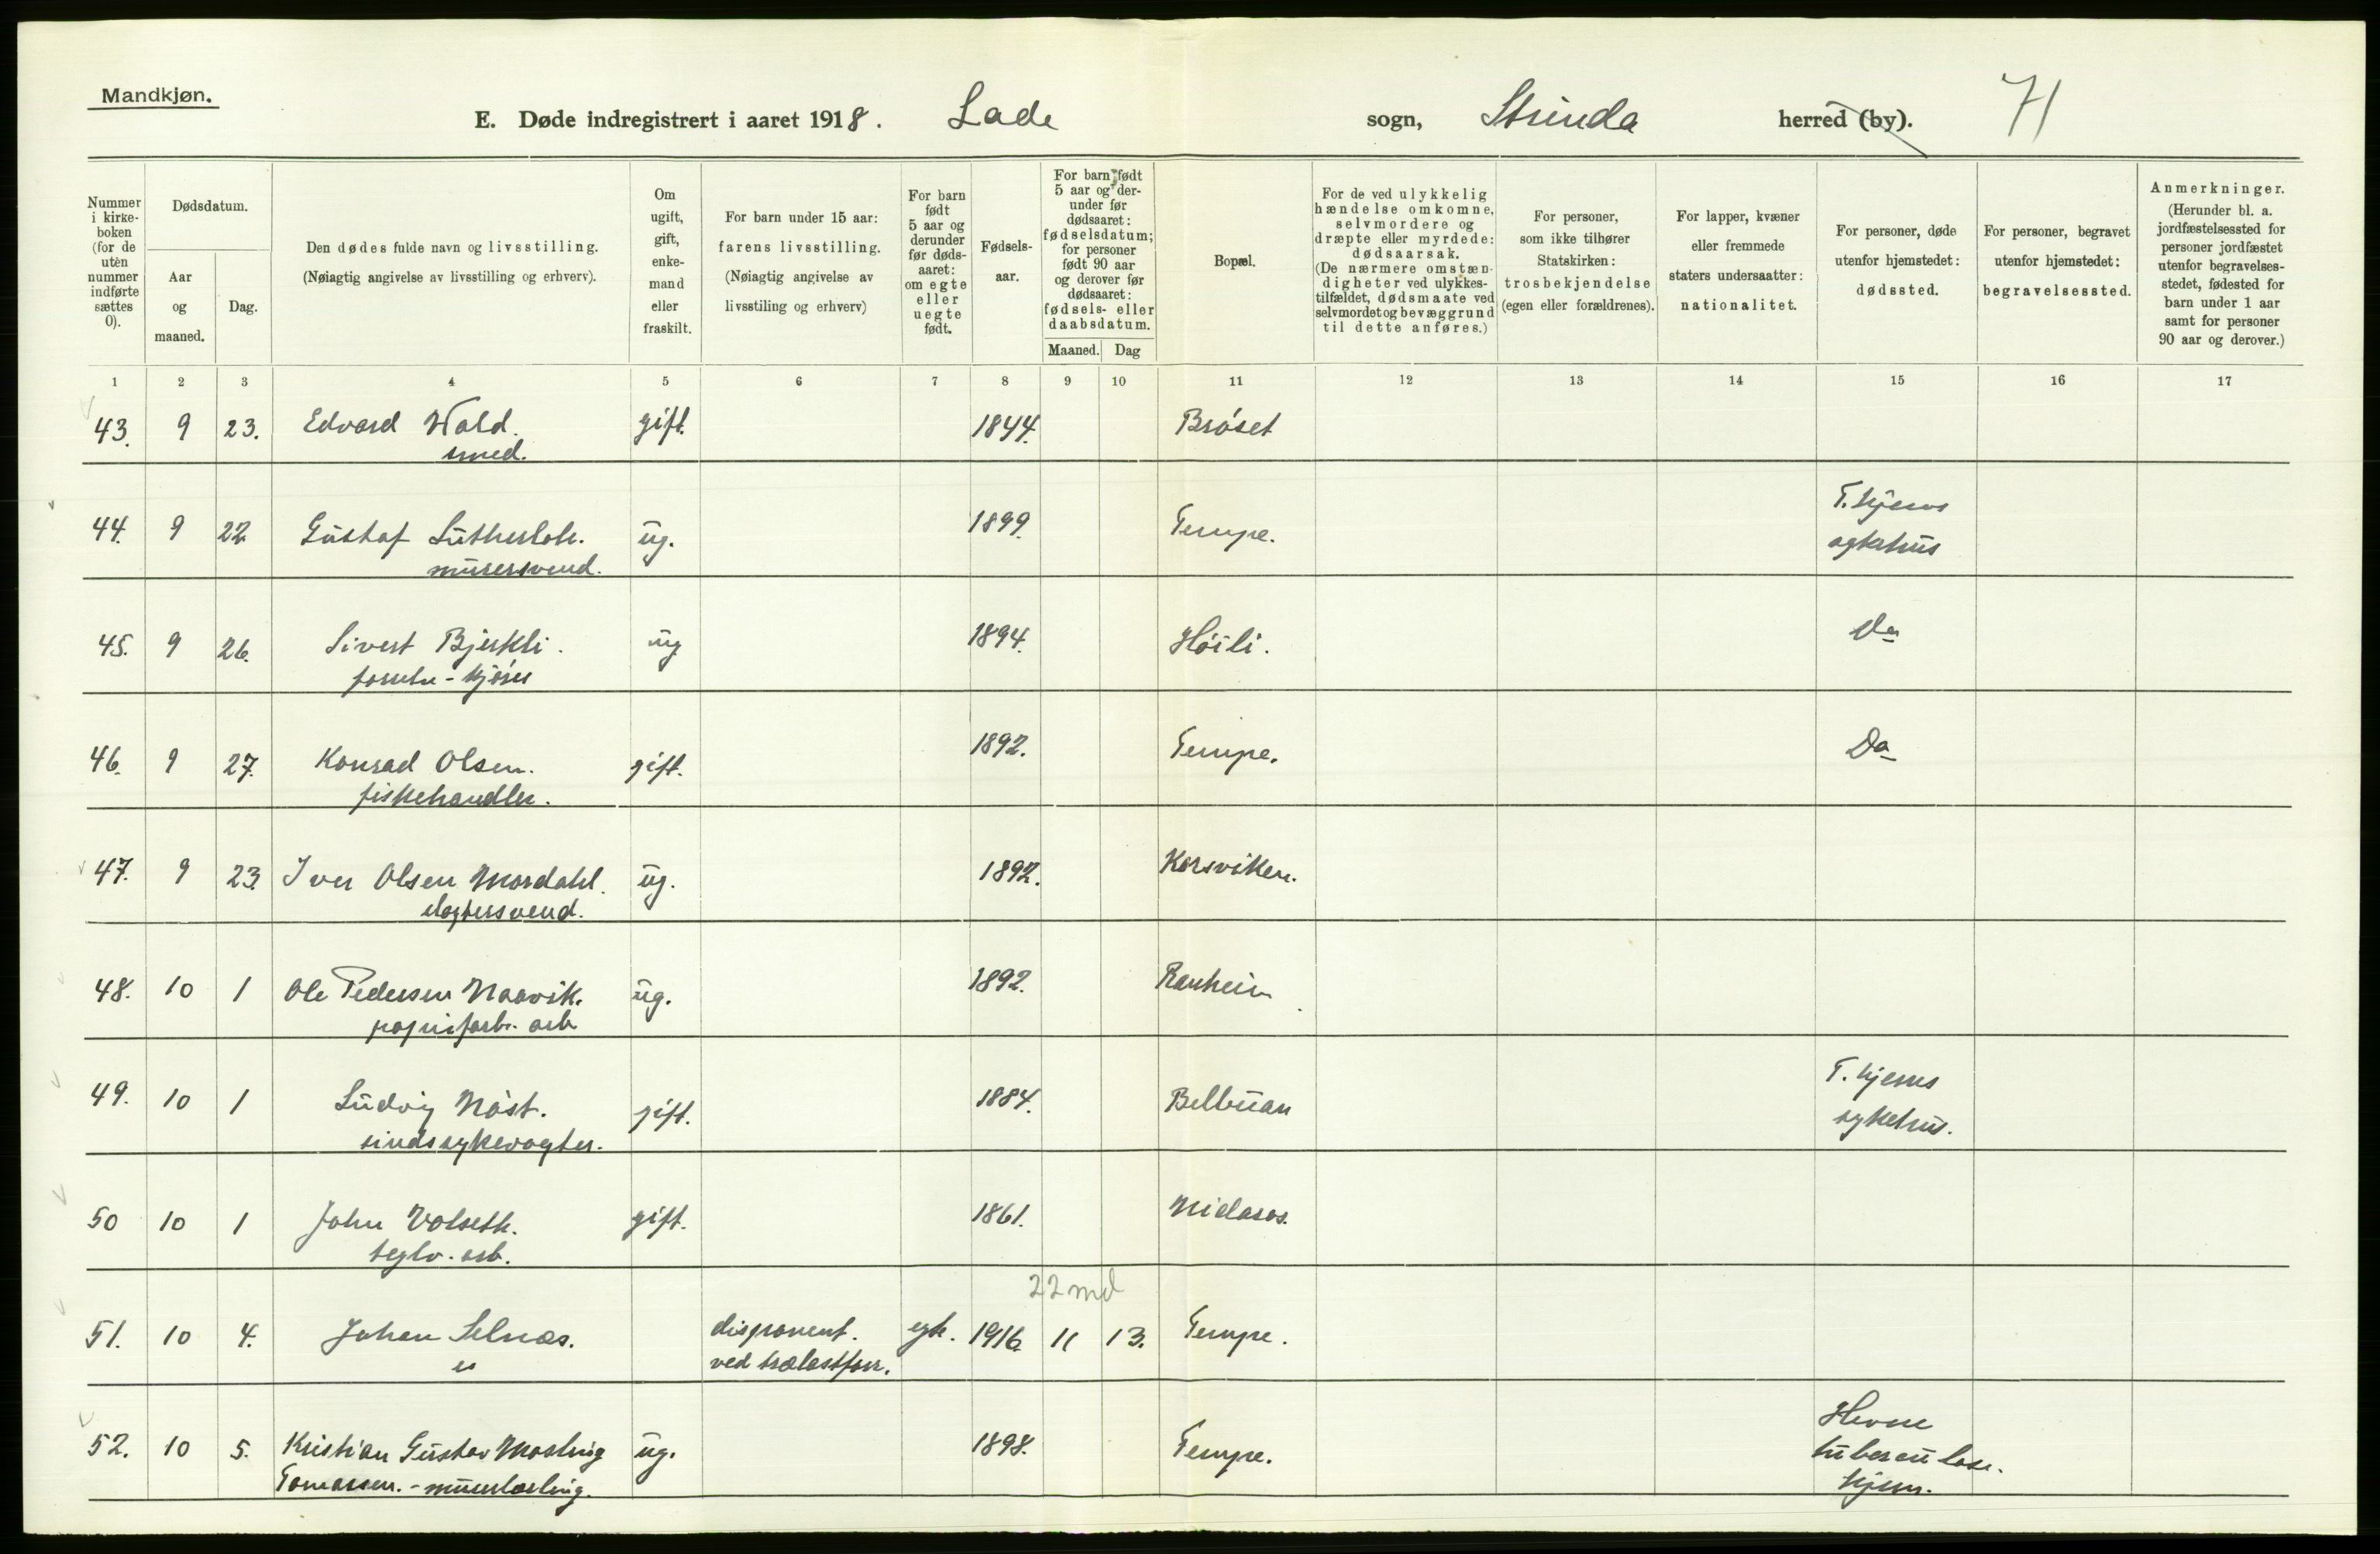 Mandkjøn.
E. Døde indregistrert i aaret 1918. Lade sogn, Strinda herred (by). 71
Nummer i kirke-boken (for de uten nummer indførte sættes 0).
Dødsdatum.
Aar og maaned.
Dag.
Den dødes fulde navn og livsstilling.
(Nøiagtig angivelse av livsstilling og erhverv).
Om ugift, gift, enke-mand eller fraskilt.
For barn under 15 aar: farens livsstilling.
(Nøiagtig angivelse av livsstiling og erhverv)
For barn født 5 aar og derunder før døds-aaret: om egte eller uegte født.
Fødsels-aar.
For barn født 5 aar og der-under før dødsaaret: fødselsdatum; for personer født 90 aar og derover før dødsaaret: fødsels- eller daabsdatum.
Maaned. Dag
Bopæl.
For de ved ulykkelig hændelse omkomne, selvmordere og dræpte eller myrdede: dødsaarsak.
(De nærmere omstæn-digheter ved ulykkes-tilfældet, dødsmaate ved selvmordet og bevæggrund til dette anføres.)
For personer, som ikke tilhører Statskirken: trosbekjendelse (egen eller forældrenes).
For lapper, kvæner eller fremmede staters undersaatter: nationalitet.
For personer, døde utenfor hjemstedet: dødssted.
For personer, begravet utenfor hjemstedet: begravelsessted.
Anmerkninger.
(Herunder bl. a. jordfæstelsessted for personer jordfæstet utenfor begravelses-stedet, fødested for barn under 1 aar samt for personer 90 aar og derover.)
1 2 3 4 5 6 7 8 9 10 11 12 13 14 15 16 17
43. 9 23. Edvard Wald. gift. 1844. Brøset
smed.
44. 9 22 Gustaf ug. 1899. Tempe. T.hjems
murersvend.
45. 9 26. Sivert Bjerkli. ug 1894. Høili. Do
kjører
46. 9 27. Konrad Olsen. gift. 1892. Tempe. Do
fiskehandler.
47. 9 23. Iver Olsen Mordahl. ug. 1892. Korsviken.
slagtersvend.
48. 10 1 Ole Pedersen Naavik. ug. 1892. Ranheim
papirfabr. arb
49. 10 1 Ludvig Nøst. gift. 1884. Belbuan T. hjems
sindssykevogter. sykehus.
50 10 1 John Volseth. gift. 1861. Nidaros.
teglv. arb.
22 md
51. 10 4. Johan Selnæs. disponent. egte. 1916. 11 13. Tempe.
ved trælastforr.
52. 10 5. Kristian Gustav Mosling ug. 1898. Tempe. Hevne
Tomassen. - murerlærling. tuberculose.
hjem.